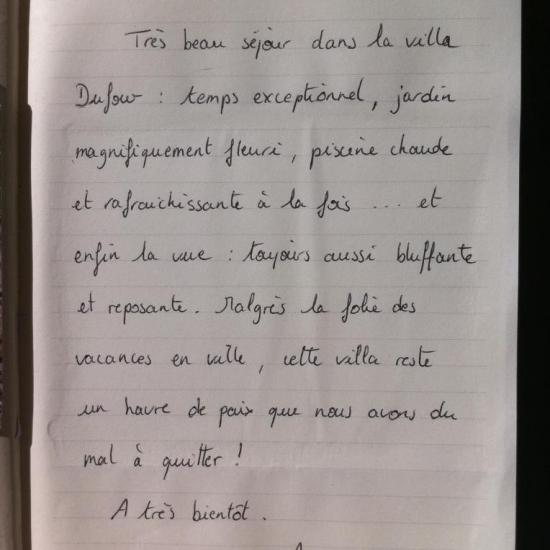 Très beau séjour dans la villa
Dufour : temps exceptionnel, jardin
magnifiquement fleuri, piscine chaude
et rafraichissante à la fois ... et
enfin la vue : toujours aussi bluffante
et reposante. Malgrès la folie des
vacances en ville, cette villa reste
un havre de paix que nous avons du
mal à quitter !
A très bientôt.